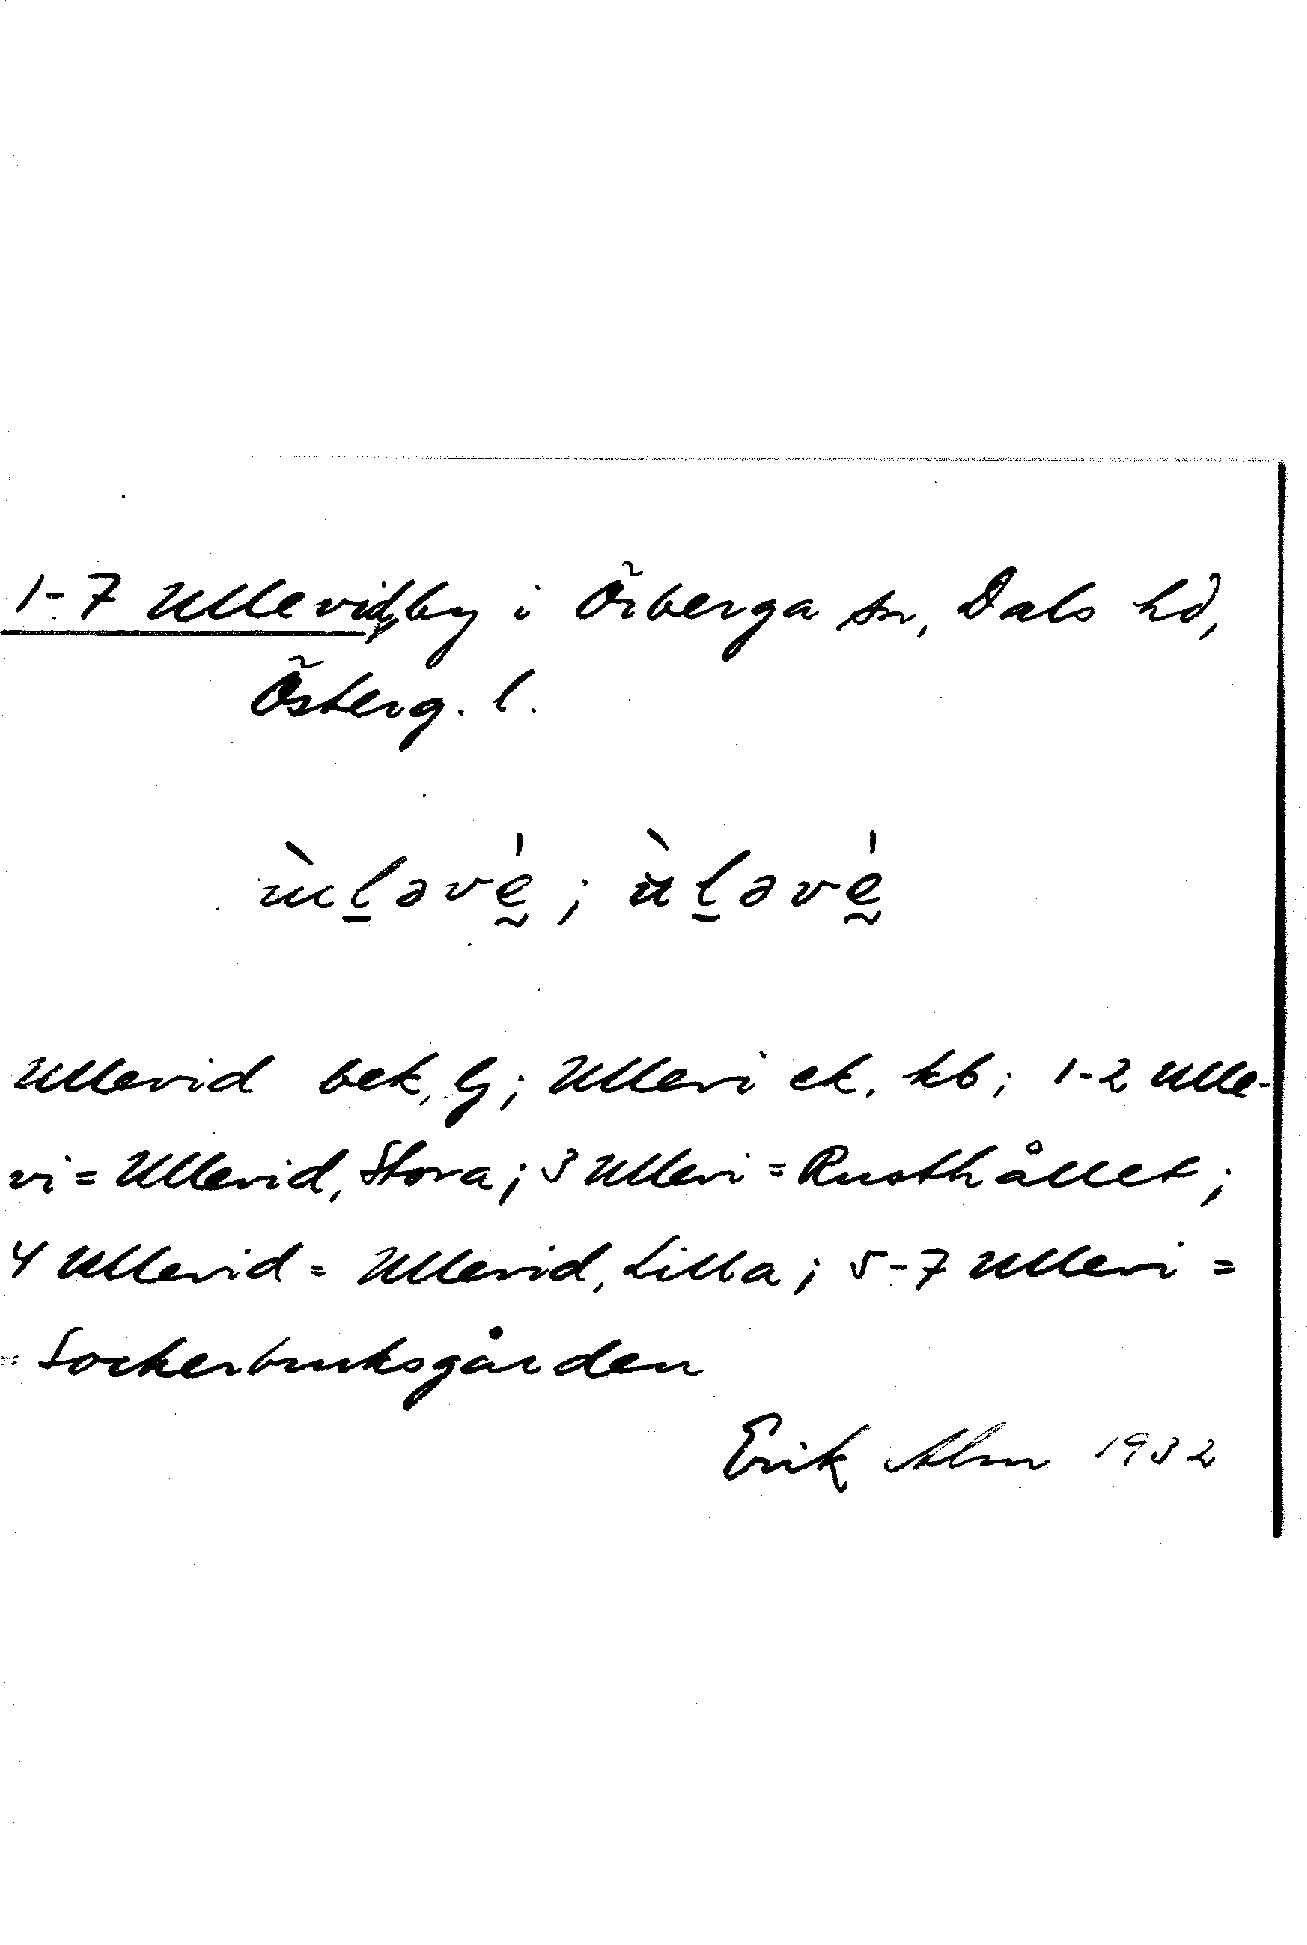 1-7 Ullevid, by i Örberga sn, Dals hd,
Österg. l.
ùḻəvḛ́; ùḻəvḛ́
Ullevid bek, Lj; Ullevi ek. kb; 1-2 Ulle-
vi = Ullevid, Stora; 3 Ullevi = Rusthållet;
4 Ullevid = Ullevid, Lilla; 5-7 Ullevi =
= Sockerbruksgården
Erik Alm 1932